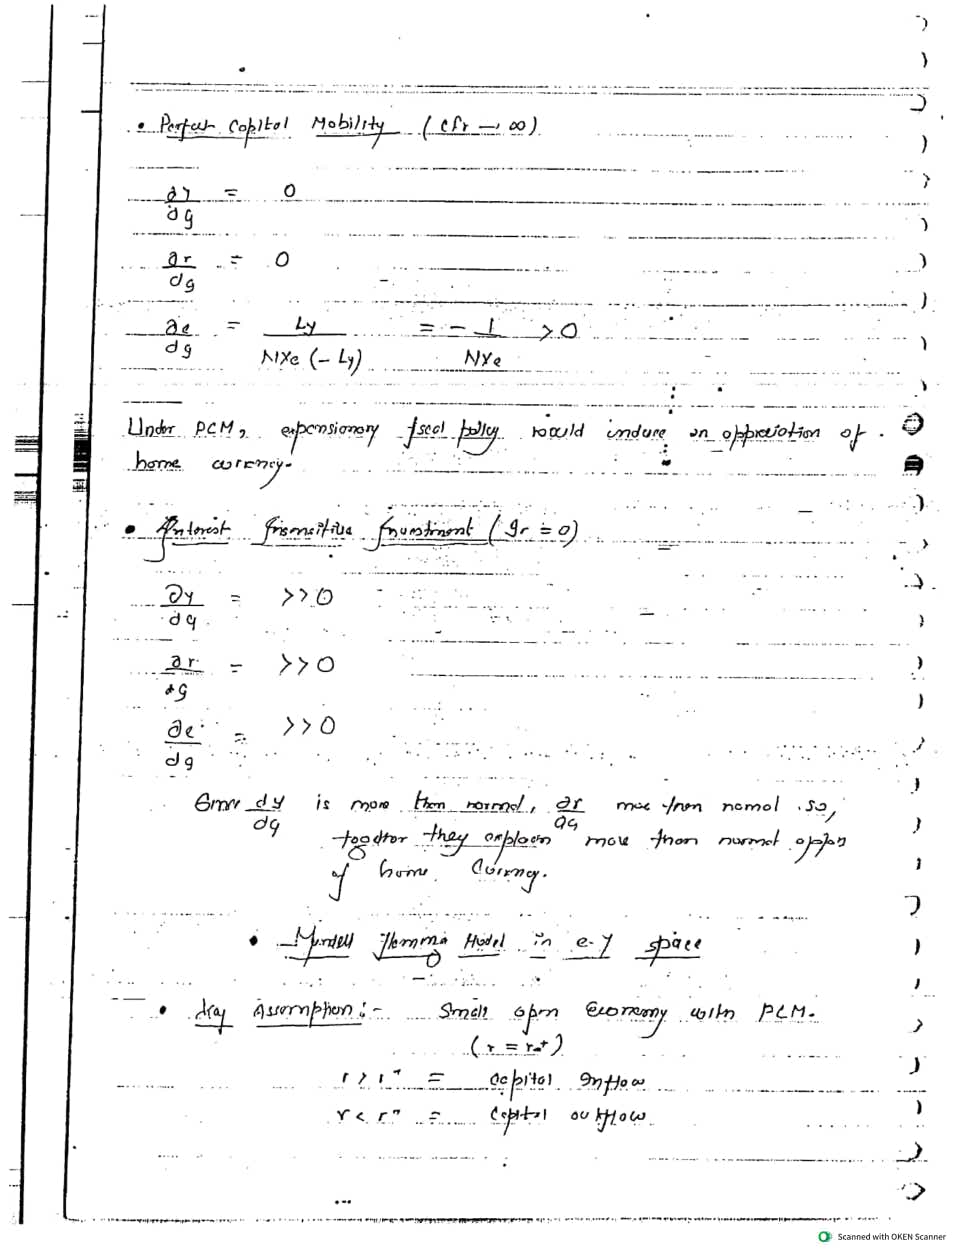 • Perfect Capital Mobility (cfr → ∞)
∂y/∂g = 0
∂r/∂g = 0
∂e/∂g = Ly / NXe (- Ly) = - 1/NXe > 0
Under PCM, expensionary fiscal policy would induce an appreciation of
home currency.
• Interest Insensitive Investment (gr = 0)
∂y/∂g = >>0
∂r/∂g = >>0
∂e/∂g = >>0
dy/dg is more than normal, ∂r/∂g more than normal. so,
together they explain more than normal
of home currency.
• Mundell Flemming Model in e-y space
• Key Assumption:- Small open Economy with PCM.
(r = r*)
r > r* = capital inflow
r < r* = capital outflow
Scanned with OKEN Scanner